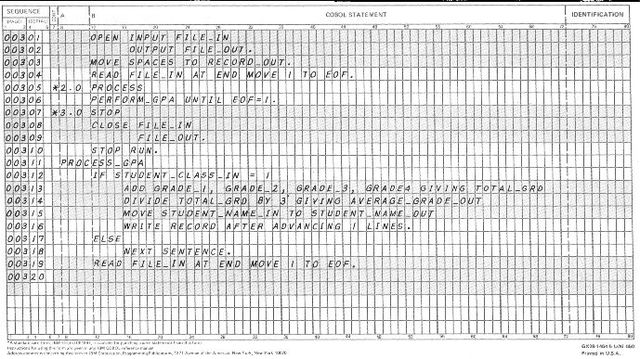 SEQUENCE
(PAGE) (SERIAL) CONT. A B COBOL STATEMENT IDENTIFICATION
00301 OPEN INPUT FILE_IN
00302 OUTPUT FILE_OUT.
00303 MOVE SPACES TO RECORD_OUT.
00304 READ FILE_IN AT END MOVE 1 TO EOF.
00305 *2.0 PROCESS
00306 PERFORM_GPA UNTIL EOF=1.
00307 *3.0 STOP
00308 CLOSE FILE_IN
00309 FILE_OUT.
00310 STOP RUN.
00311 PROCESS_GPA
00312 IF STUDENT_CLASS_IN = 1
00313 ADD GRADE_1, GRADE_2, GRADE_3, GRADE4 GIVING TOTAL_GRD
00314 DIVIDE TOTAL_GRD BY 3 GIVING AVERAGE_GRADE_OUT
00315 MOVE STUDENT_NAME_IN TO STUDENT_NAME_OUT
00316 WRITE RECORD AFTER ADVANCING 1 LINES.
00317 ELSE
00318 NEXT SENTENCE.
00319 READ FILE_IN AT END MOVE 1 TO EOF.
00320
Printed in U.S.A.